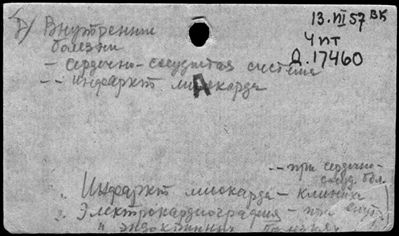 Д) Внутренние
болезни
– сердечно-сосудистая система
– – инфаркт миокарда
13.VI 57 ВК
4 пт
Д.17460
А
– – при сердечно-
сосуд. бол
Инфаркт миокарда – клиника
Электрокардиография – при
" эндокринных болезнях